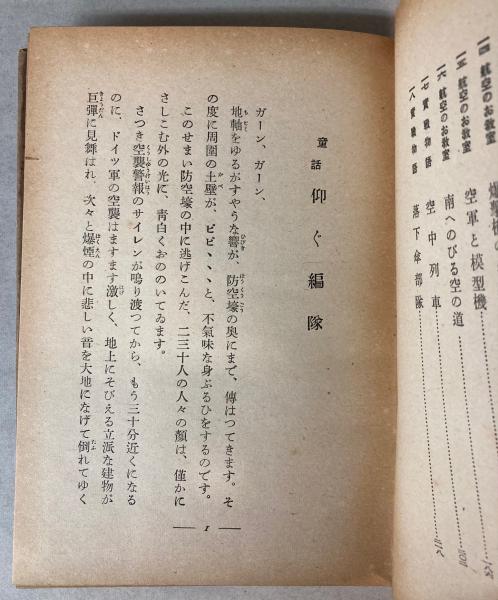 一四 航空のお教室 爆撃機の
一五 航空のお教室 空軍と模型機
一六 航空のお教室 南へのびる空の道
一七 實戰物語 空中列車
一八 實戰物語 落下傘部隊
童話 仰ぐ編隊
ガーン、ガーン、
地軸をゆるがすやうな響が、防空壕の奥にまで、傳はつてきます。そ
の度に周圍の土壁が、ビビ、、、と、不氣味な身ぶるひをするのです。
このせまい防空壕の中に逃げこんだ、二三十人の人々の顔は、僅かに
さしこむ外の光に、靑白くおののいてゐます。
さつき空襲警報のサイレンが鳴り渡つてから、もう三十分近くになる
のに、ドイツ軍の空襲はますます激しく、地上にそびえる立派な建物が
巨彈に見舞はれ、次々と爆煙の中に悲しい音を大地になげて倒れてゆく
― 1 ―